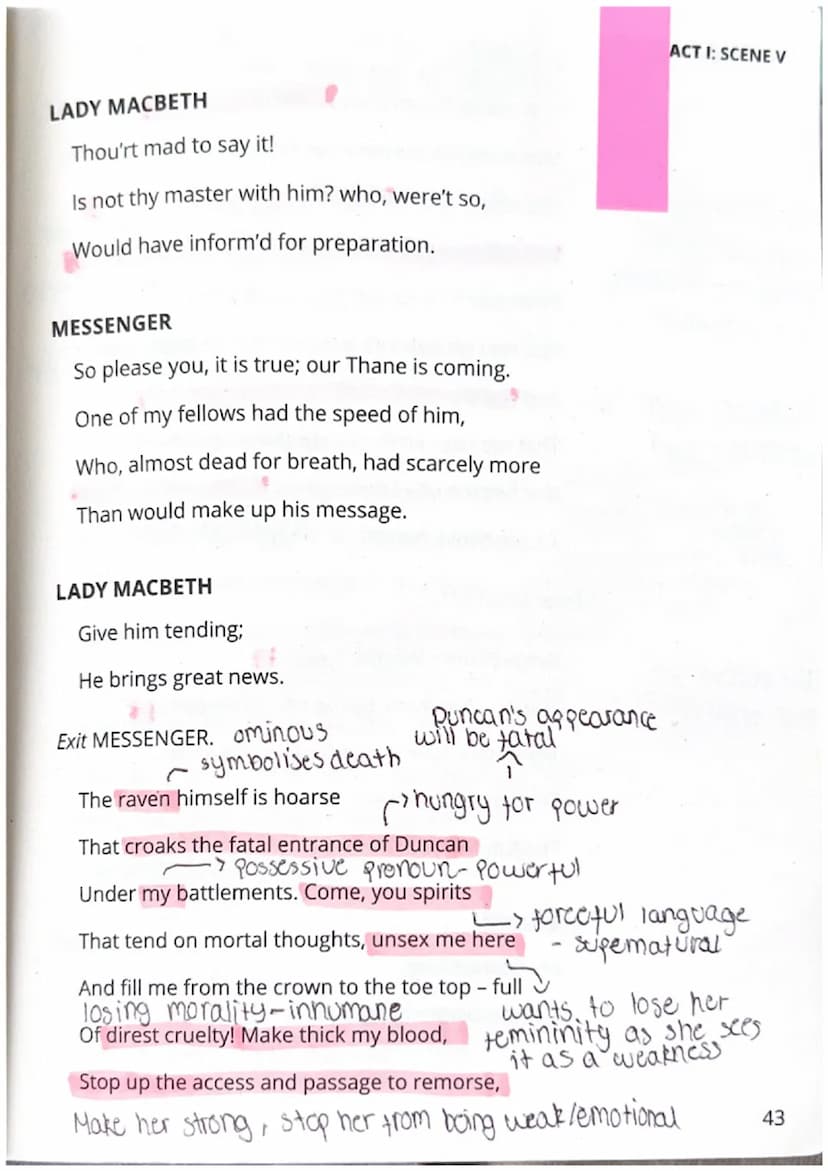 ACT I: SCENE V
LADY MACBETH
Thou'rt mad to say it!
Is not thy master with him? who, were't so,
Would have inform'd for preparation.
MESSENGER
So please you, it is true; our Thane is coming.
One of my fellows had the speed of him,
Who, almost dead for breath, had scarcely more
Than would make up his message.
LADY MACBETH
Give him tending;
He brings great news.
Duncan's appearance
Exit MESSENGER. ominous
will be fatal
symbolises death
The raven himself is hoarse
hungry for power
That croaks the fatal entrance of Duncan
possessive pronoun - powerful
Under my battlements. Come, you spirits
forceful language
That tend on mortal thoughts, unsex me here
- supernatural
And fill me from the crown to the toe top – full
losing morality - inhumane
wants to lose her
Of direst cruelty! Make thick my blood,
femininity as she sees
it as a weakness
Stop up the access and passage to remorse,
Make her strong, stop her from being weak/emotional
43